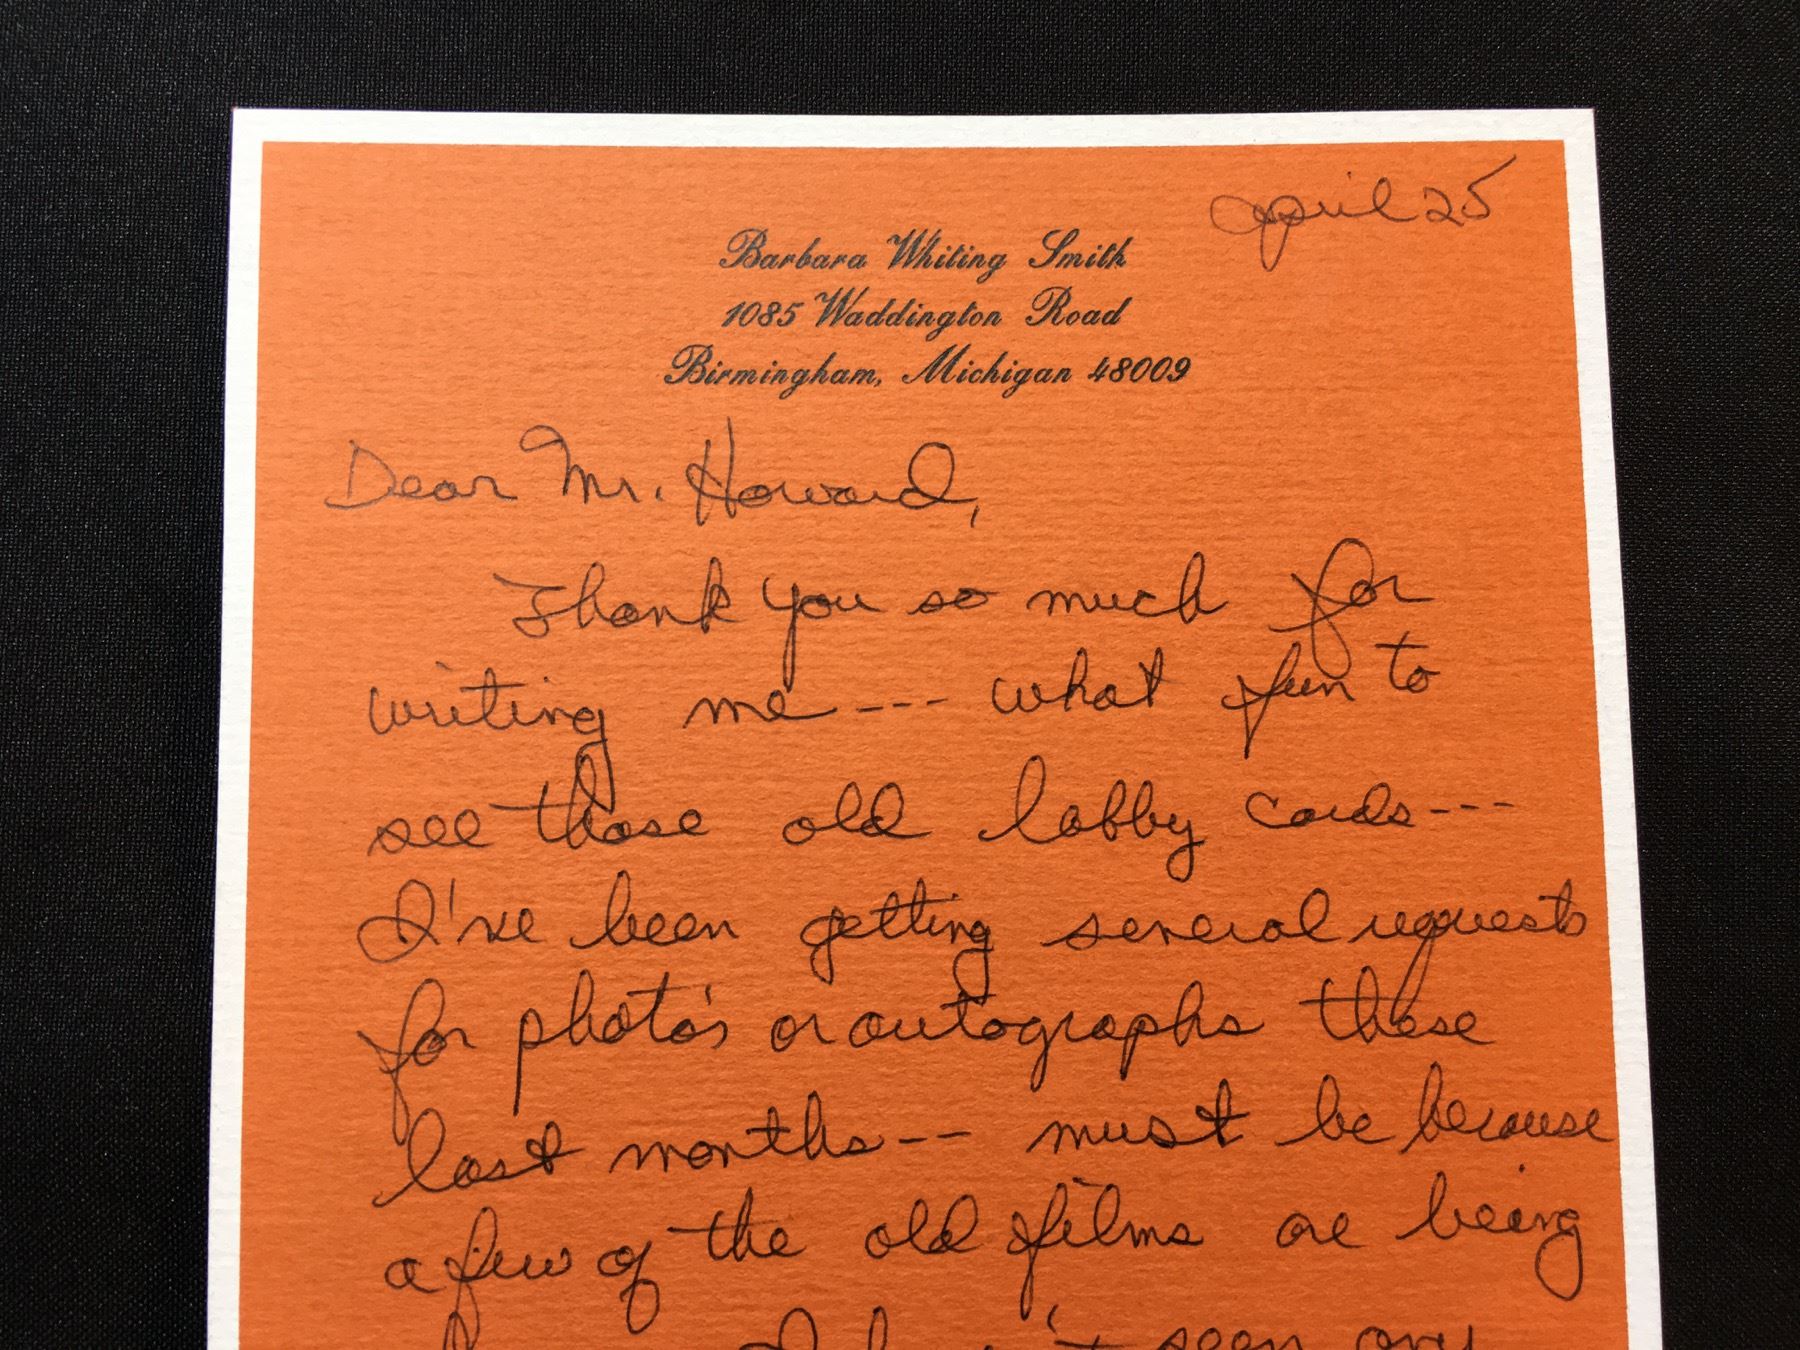 april 25
Barbara Whiting Smith
1085 Waddington Road
Birmingham, Michigan 48009
Dear Mr. Howard,
Thank you so much for
writing me --- what fun to
see those old lobby cards ---
I've been getting several requests
for photo's or autographs these
last months -- must be because
a few of the old films are being
I haven't seen any